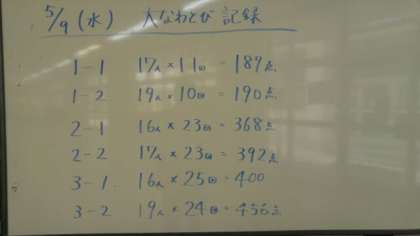 5/9(水) 大なわとび 記録
1-1 17人×11回=187点
1-2 19人×10回=190点
2-1 16人×23回=368点
2-2 17人×23回=392点
3-1 16人×25回=400
3-2 19人×24回=456点